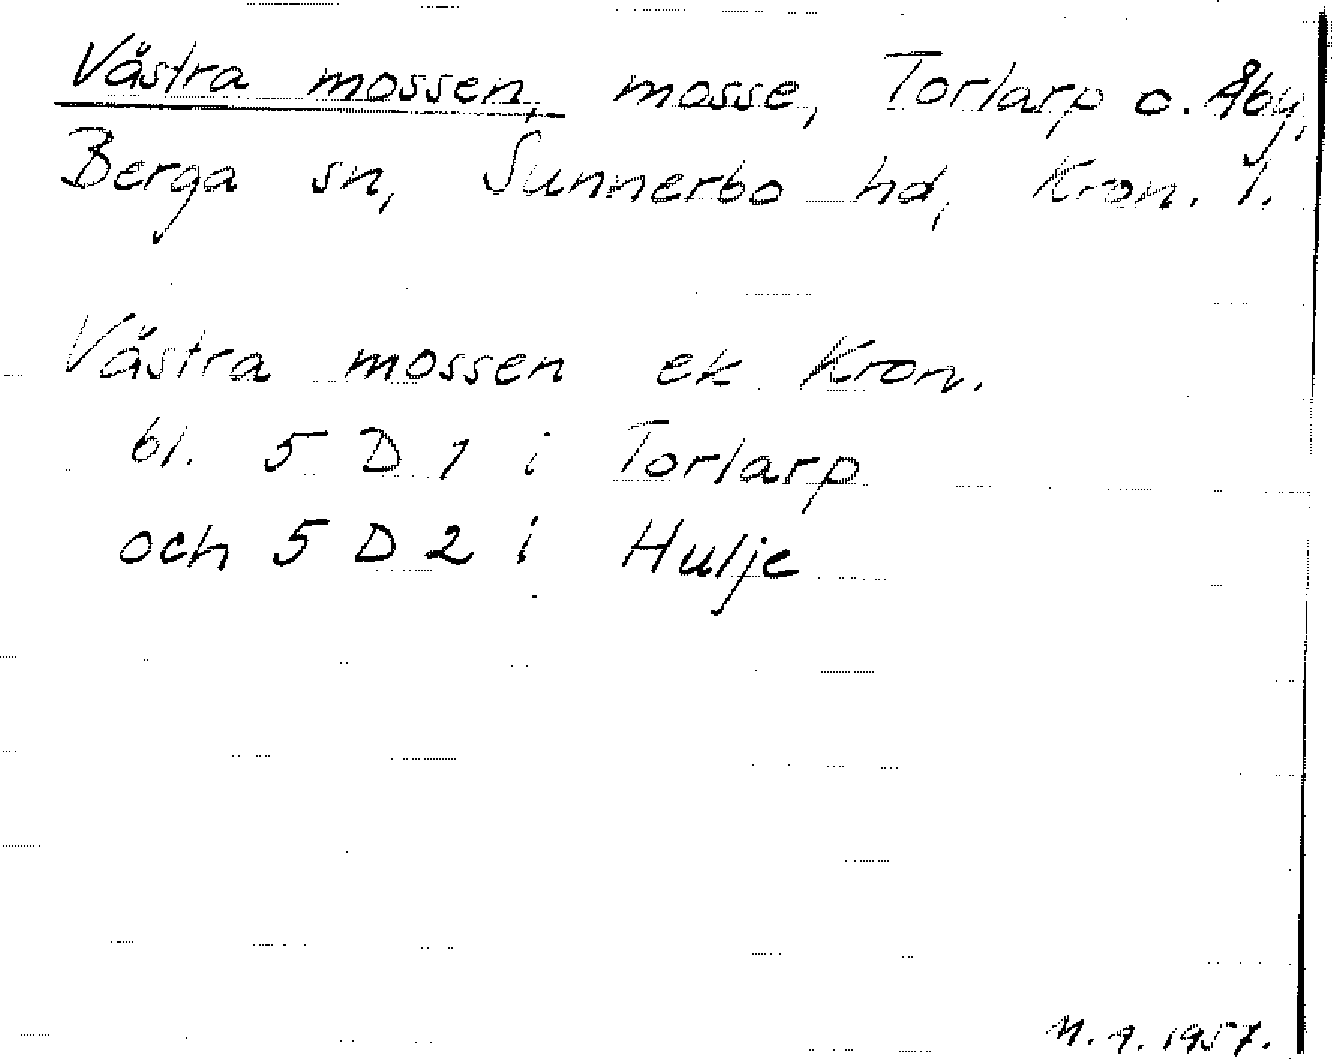 Västra mossen, mosse, Torlarp o. Åby,
Berga sn, Sunnerbo hd, Kron. l.
Västra mossen ek Kron.
bl. 5 D 1 i Torlarp
och 5 D 2 i Hulje
1957.